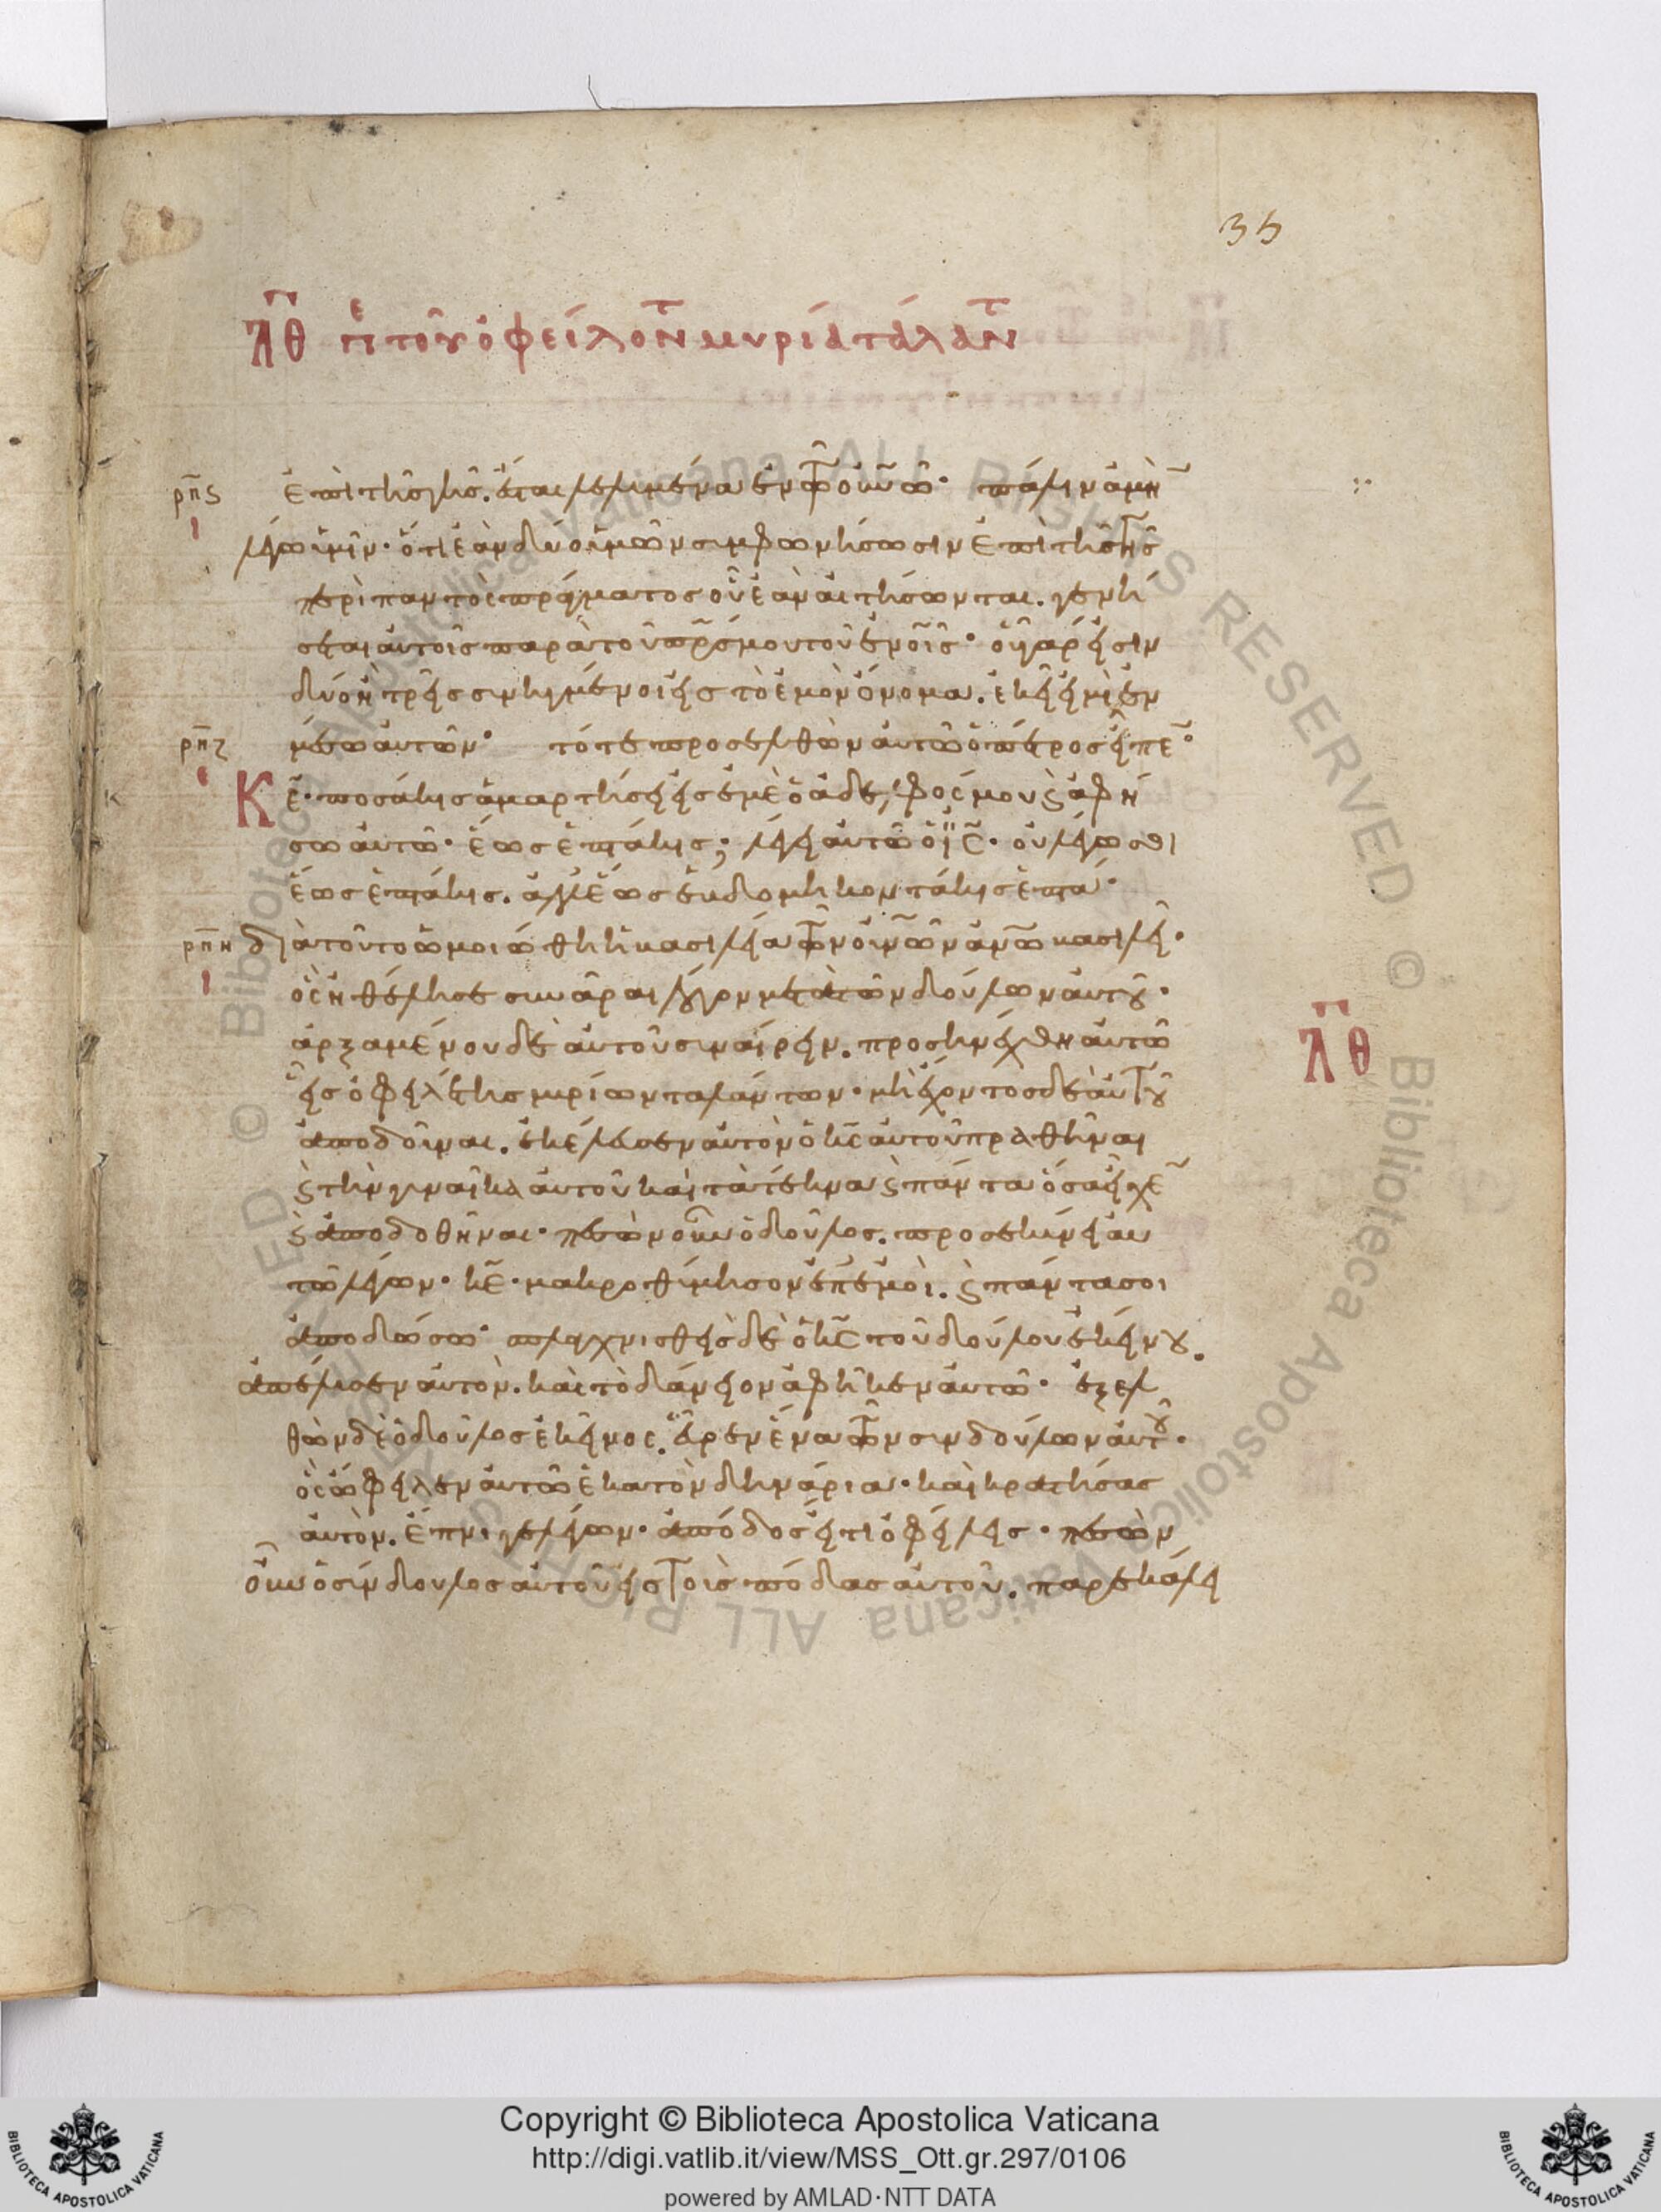 35
λθ πε τοῦ ὀφείλοντ μυρία τάλαντ
ρπς ἐπὶ τῆς γῆς. ἔσται λελυμένα ἐν τῶ οὐνῶ· πάλιν ἀμὴν
λέγω ὑμῖν· ὅτι ἐὰν δύο ὑμῶν συμφωνήσωσιν ἐπὶ τῆς γῆς
περὶ παντὸς πράγματος οὗ ἐὰν αἰτήσωνται. γενή
σεται αὐτοῖς παρὰ τοῦ πρς μου τοῦ ἐν οὐνοῖς· οὗ γάρ εἰσιν
δύο ἢ τρεῖς συνηγμένοι εἰς τὸ ἐμὸν ὄνομα. ἐκεῖ εἰμὶ ἐν
ρπζ μέσω αὐτῶν· τότε προσελθὼν αὐτῶ ὁ πέτρος εἶπε·
Κε· ποσάκις ἁμαρτήσει εἰς ἐμὲ ὁ ἀδελφός μου καὶ ἀφή
σω αὐτῶ· ἕως ἑπτάκις; λέγει αὐτῶ ὁ ις· οὐ λέγω σοι
ἕως ἑπτάκις. ἀλλ' ἕως ἑβδομηκοντάκις ἑπτά·
ρπη διὰ τοῦτο ὡμοιώθη ἡ βασιλεία τῶν οὐνῶν ἀνω βασιλεῖ·
ὃς ἠθέλησε συνᾶραι λόγον μετὰ τῶν δούλων αὐτοῦ·
ἀρξαμένου δὲ αὐτοῦ συναίρειν. προσηνέχθη αὐτῶ λθ
εἷς ὀφειλέτης μυρίων ταλάντων· μὴ ἔχοντος δὲ αὐτοῦ
ἀποδοῦναι. ἐκέλευσεν αὐτὸν ὁ κς αὐτοῦ πραθῆναι
καὶ τὴν γυναῖκα αὐτοῦ καὶ τὰ τέκνα καὶ πάντα ὅσα εἶχε
καὶ ἀποδοθῆναι· πεσὼν οὖν ὁ δοῦλος. προσεκύνει αὐ
τῶ λέγων· κε· μακροθύμησον ἐπ' ἐμοὶ. καὶ πάντα σοι
ἀποδώσω· σπλαγχνισθεὶς δὲ ὁ κς τοῦ δούλου ἐκείνου.
ἀπέλυσεν αὐτὸν. καὶ τὸ δάνειον ἀφῆκεν αὐτῶ· ἐξελ
θὼν δὲ ὁ δοῦλος ἐκεῖνος. εὗρεν ἕνα τῶν συνδούλων αὐτοῦ·
ὃς ὤφειλεν αὐτῶ ἑκατὸν δηνάρια· καὶ κρατήσας
αὐτὸν. ἔπνιγε λέγων· ἀπόδος εἴ τι ὀφείλεις· πεσὼν
οὖν ὁ σύνδουλος αὐτοῦ εἰς τοὺς πόδας αὐτοῦ. παρεκάλει
Copyright © Biblioteca Apostolica Vaticana
http://digi.vatlib.it/view/MSS_Ott.gr.297/0106
powered by AMLAD·NTT DATA
BIBLIOTECA APOSTOLICA VATICANA
BIBLIOTECA APOSTOLICA VATICANA